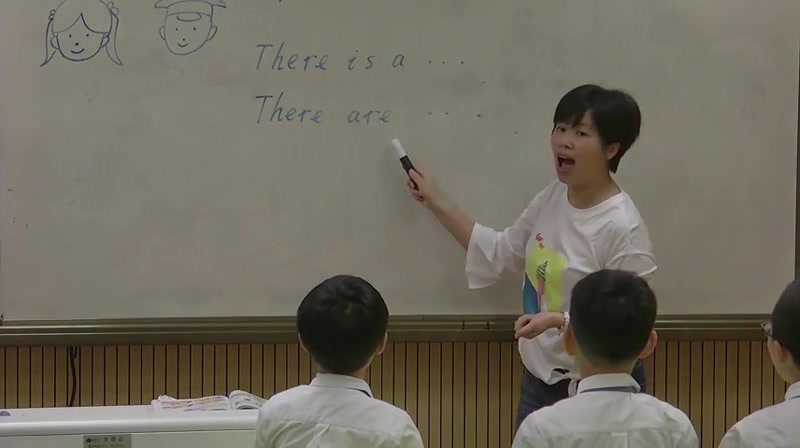 There is a ....
There are ....